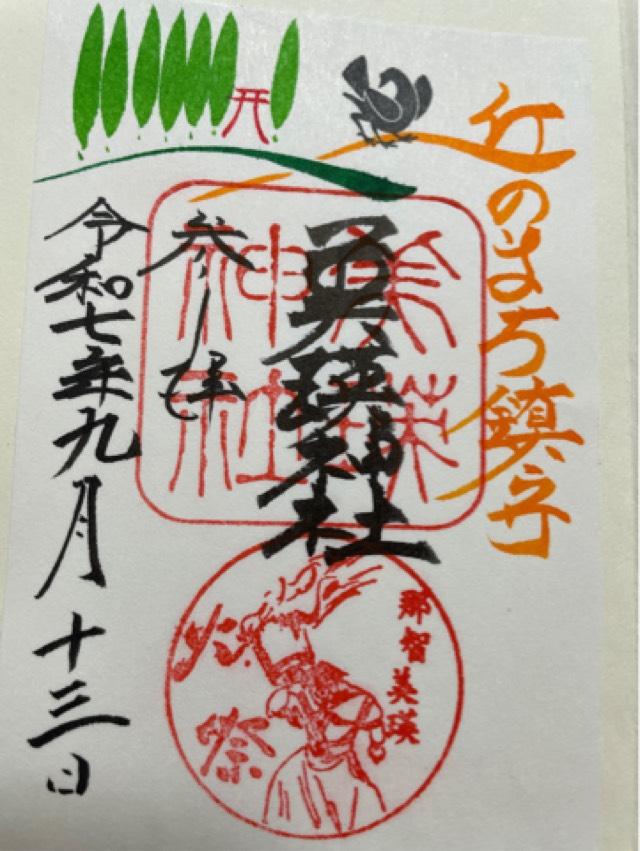 丘のまち鎮守
美瑛神社
参拝
令和七年九月十三日
美瑛
神社
那智美瑛
火祭